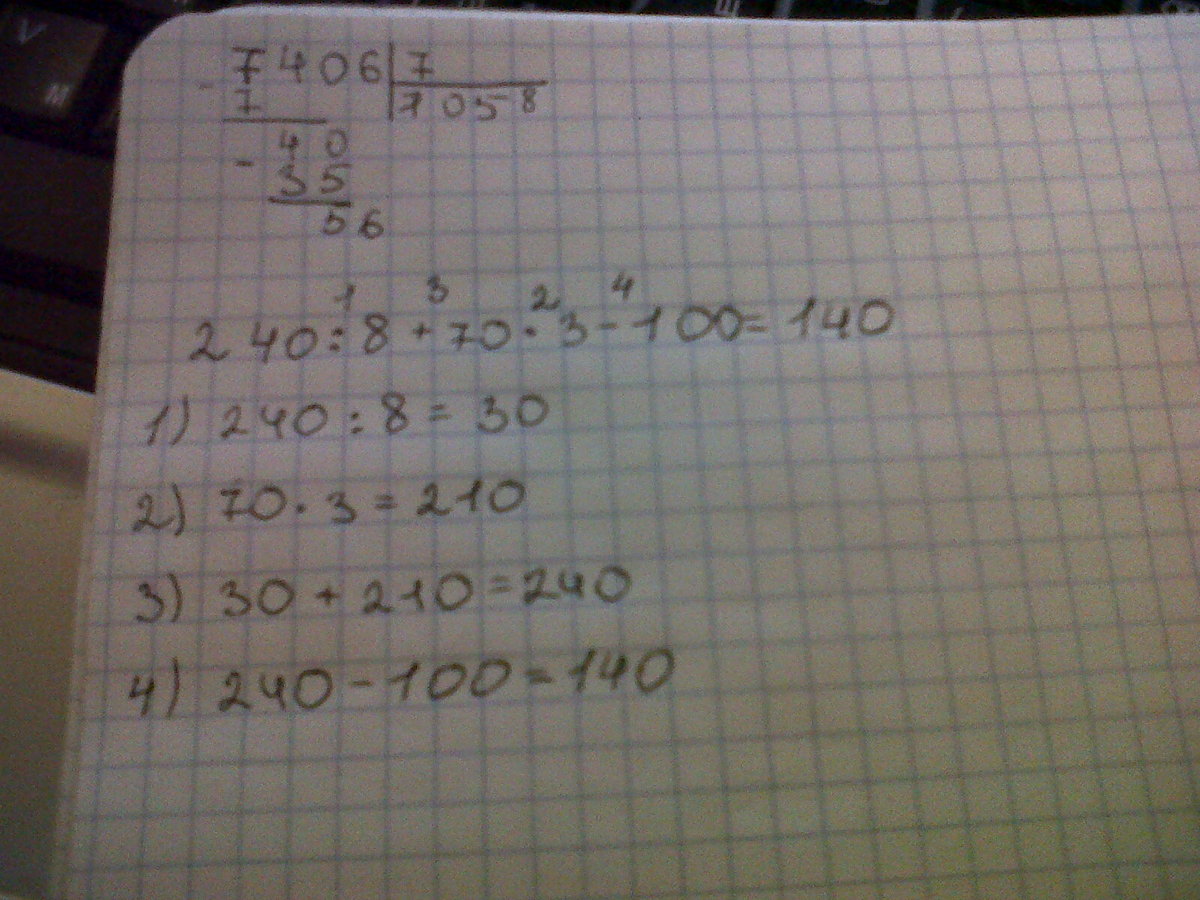 7406 7
7 7058
- 40
35
56
1 3 2 4
240:8+70·3-100=140
1) 240:8=30
2) 70·3=210
3) 30+210=240
4) 240-100=140